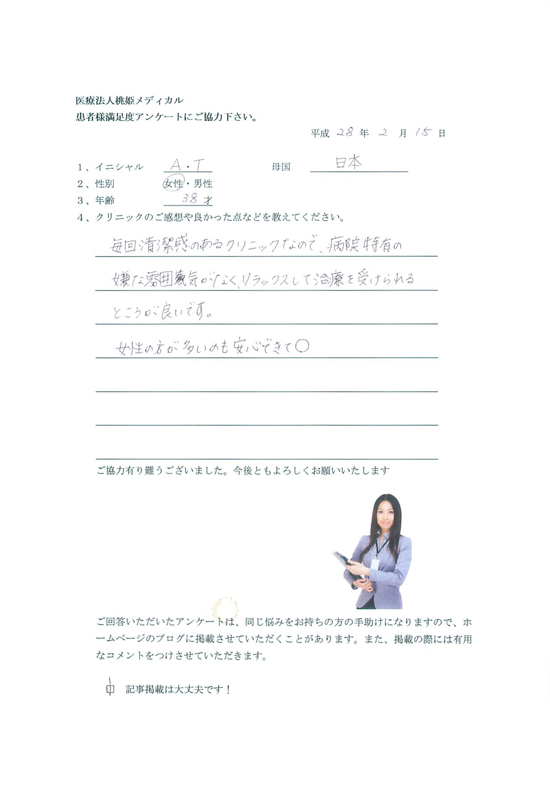 医療法人桃姫メディカル
患者様満足度アンケートにご協力下さい。
平成 28 年 2 月 15 日
1、イニシャル A・T 母国 日本
2、性別 女性・男性
3、年齢 38 才
4、クリニックのご感想や良かった点などを教えてください。
毎回清潔感のあるクリニックなので、病院特有の
嫌な雰囲気がなく、リラックスして治療を受けられる
ところが良いです。
女性の方が多いのも安心できて〇
ご協力有り難うございました。今後ともよろしくお願いいたします
ご回答いただいたアンケートは、同じ悩みをお持ちの方の手助けになりますので、ホ
ームページのブログに掲載させていただくことがあります。また、掲載の際には有用
なコメントをつけさせていただきます。
記事掲載は大丈夫です！